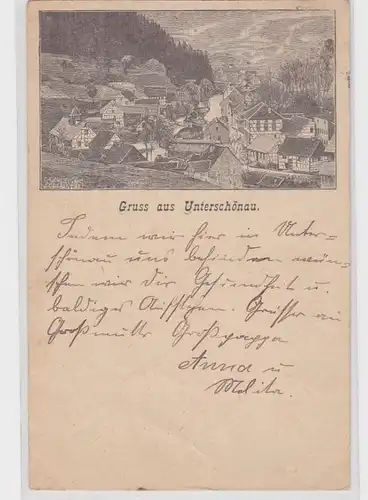 Gruss aus Unterschönau.
Indem wir hier in Unter=
schönau uns befinden wün=
schen wir dir Gesundheit u.
baldiges Grüsse an
Großmutter Großpappa
Anna u
Melita.